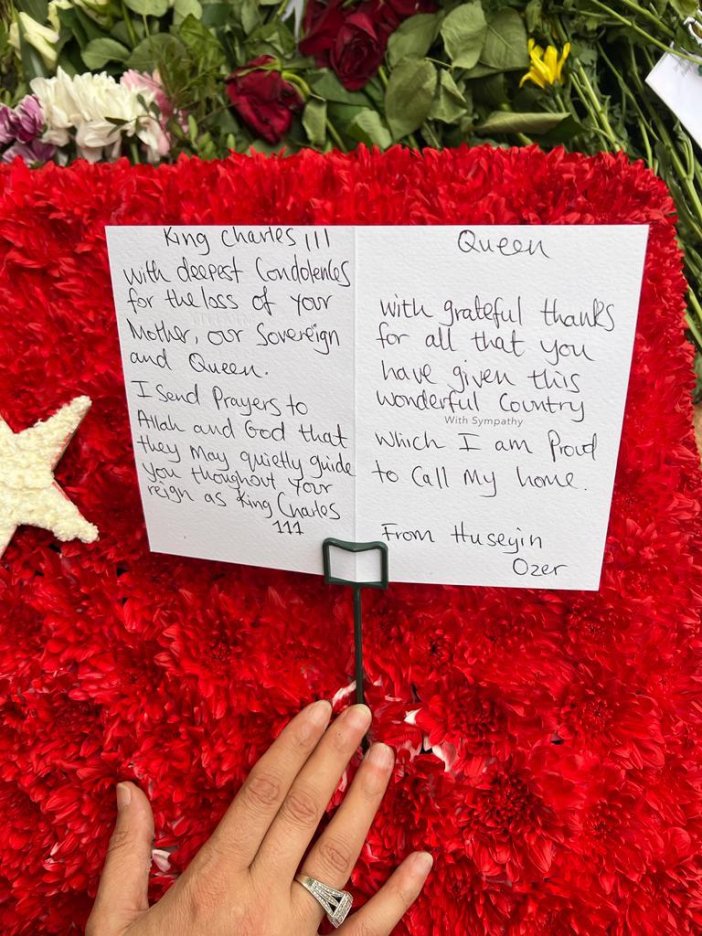 King Charles III
with deepest Condolences
for the loss of your
Mother, our Sovereign
and Queen.
I Send Prayers to
Allah and God that
they May quietly guide
you thoughout your
reign as King Charles
111
Queen
with grateful thanks
for all that you
have given this
wonderful Country
With Sympathy
which I am Proud
to Call My home.
From Huseyin
Ozer